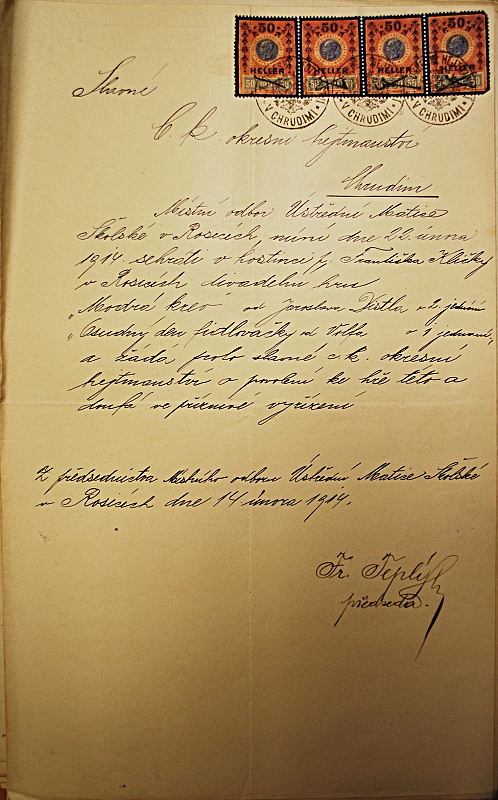 50 50 50 50
HELLER HELLER HELLER HELLER
V CHRUDIMI V CHRUDIMI V CHRUDIMI
Slavné
C. k. okresní hejtmanství
Chrudim
Místní odbor Ústřední Matice
Školské v Rosicích míní dne 22. února
1914 sehráti v hostinci p. Františka Kličky
v Rosicích divadelní hru
„Modrá krev" od Jaroslava Distla o 2. jednání
„Osudný den fidlovačky od Volfa o 1 jednání,
a žádá proto slavné c. k. okresní
hejtmanství o povolení ke hře této a
doufá ve příznivé vyřízení.
Z předsednictva Místního odboru Ústřední Matice Školské
v Rosicích dne 14 února 1914.
Fr. Teplý
předseda.